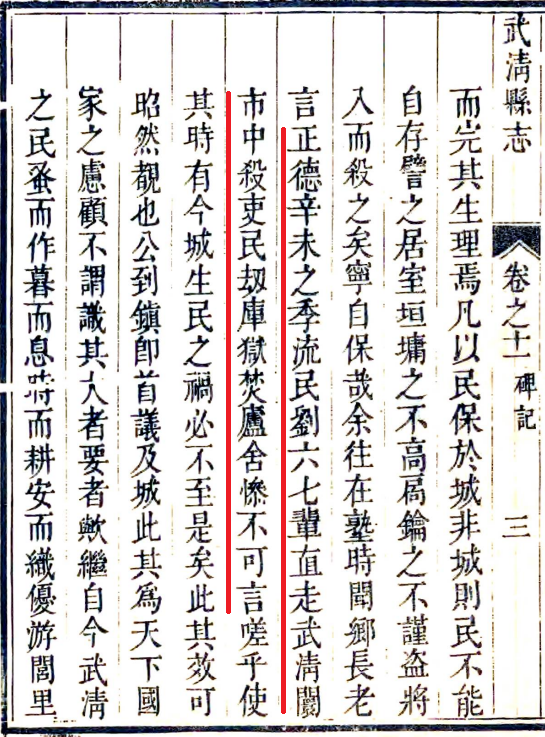 武清縣志
卷之十一
碑記
三
而完其生理焉凡以民保於城非城則民不能
自存譬之居室垣墉之不高扃鑰之不謹盜將
入而殺之矣寧自保哉余往在塾時聞鄉長老
言正德辛未之季流民劉六七輩直走武淸闤
市中殺吏民刼庫獄焚廬舍慘不可言嗟乎使
其時有今城生民之禍必不至是矣此其效可
昭然覩也公到鎭卽首議及城此其爲天下國
家之慮顧不謂識其大者要者歟繼自今武淸
之民蚤而作暮而息時而耕安而織優游閭里